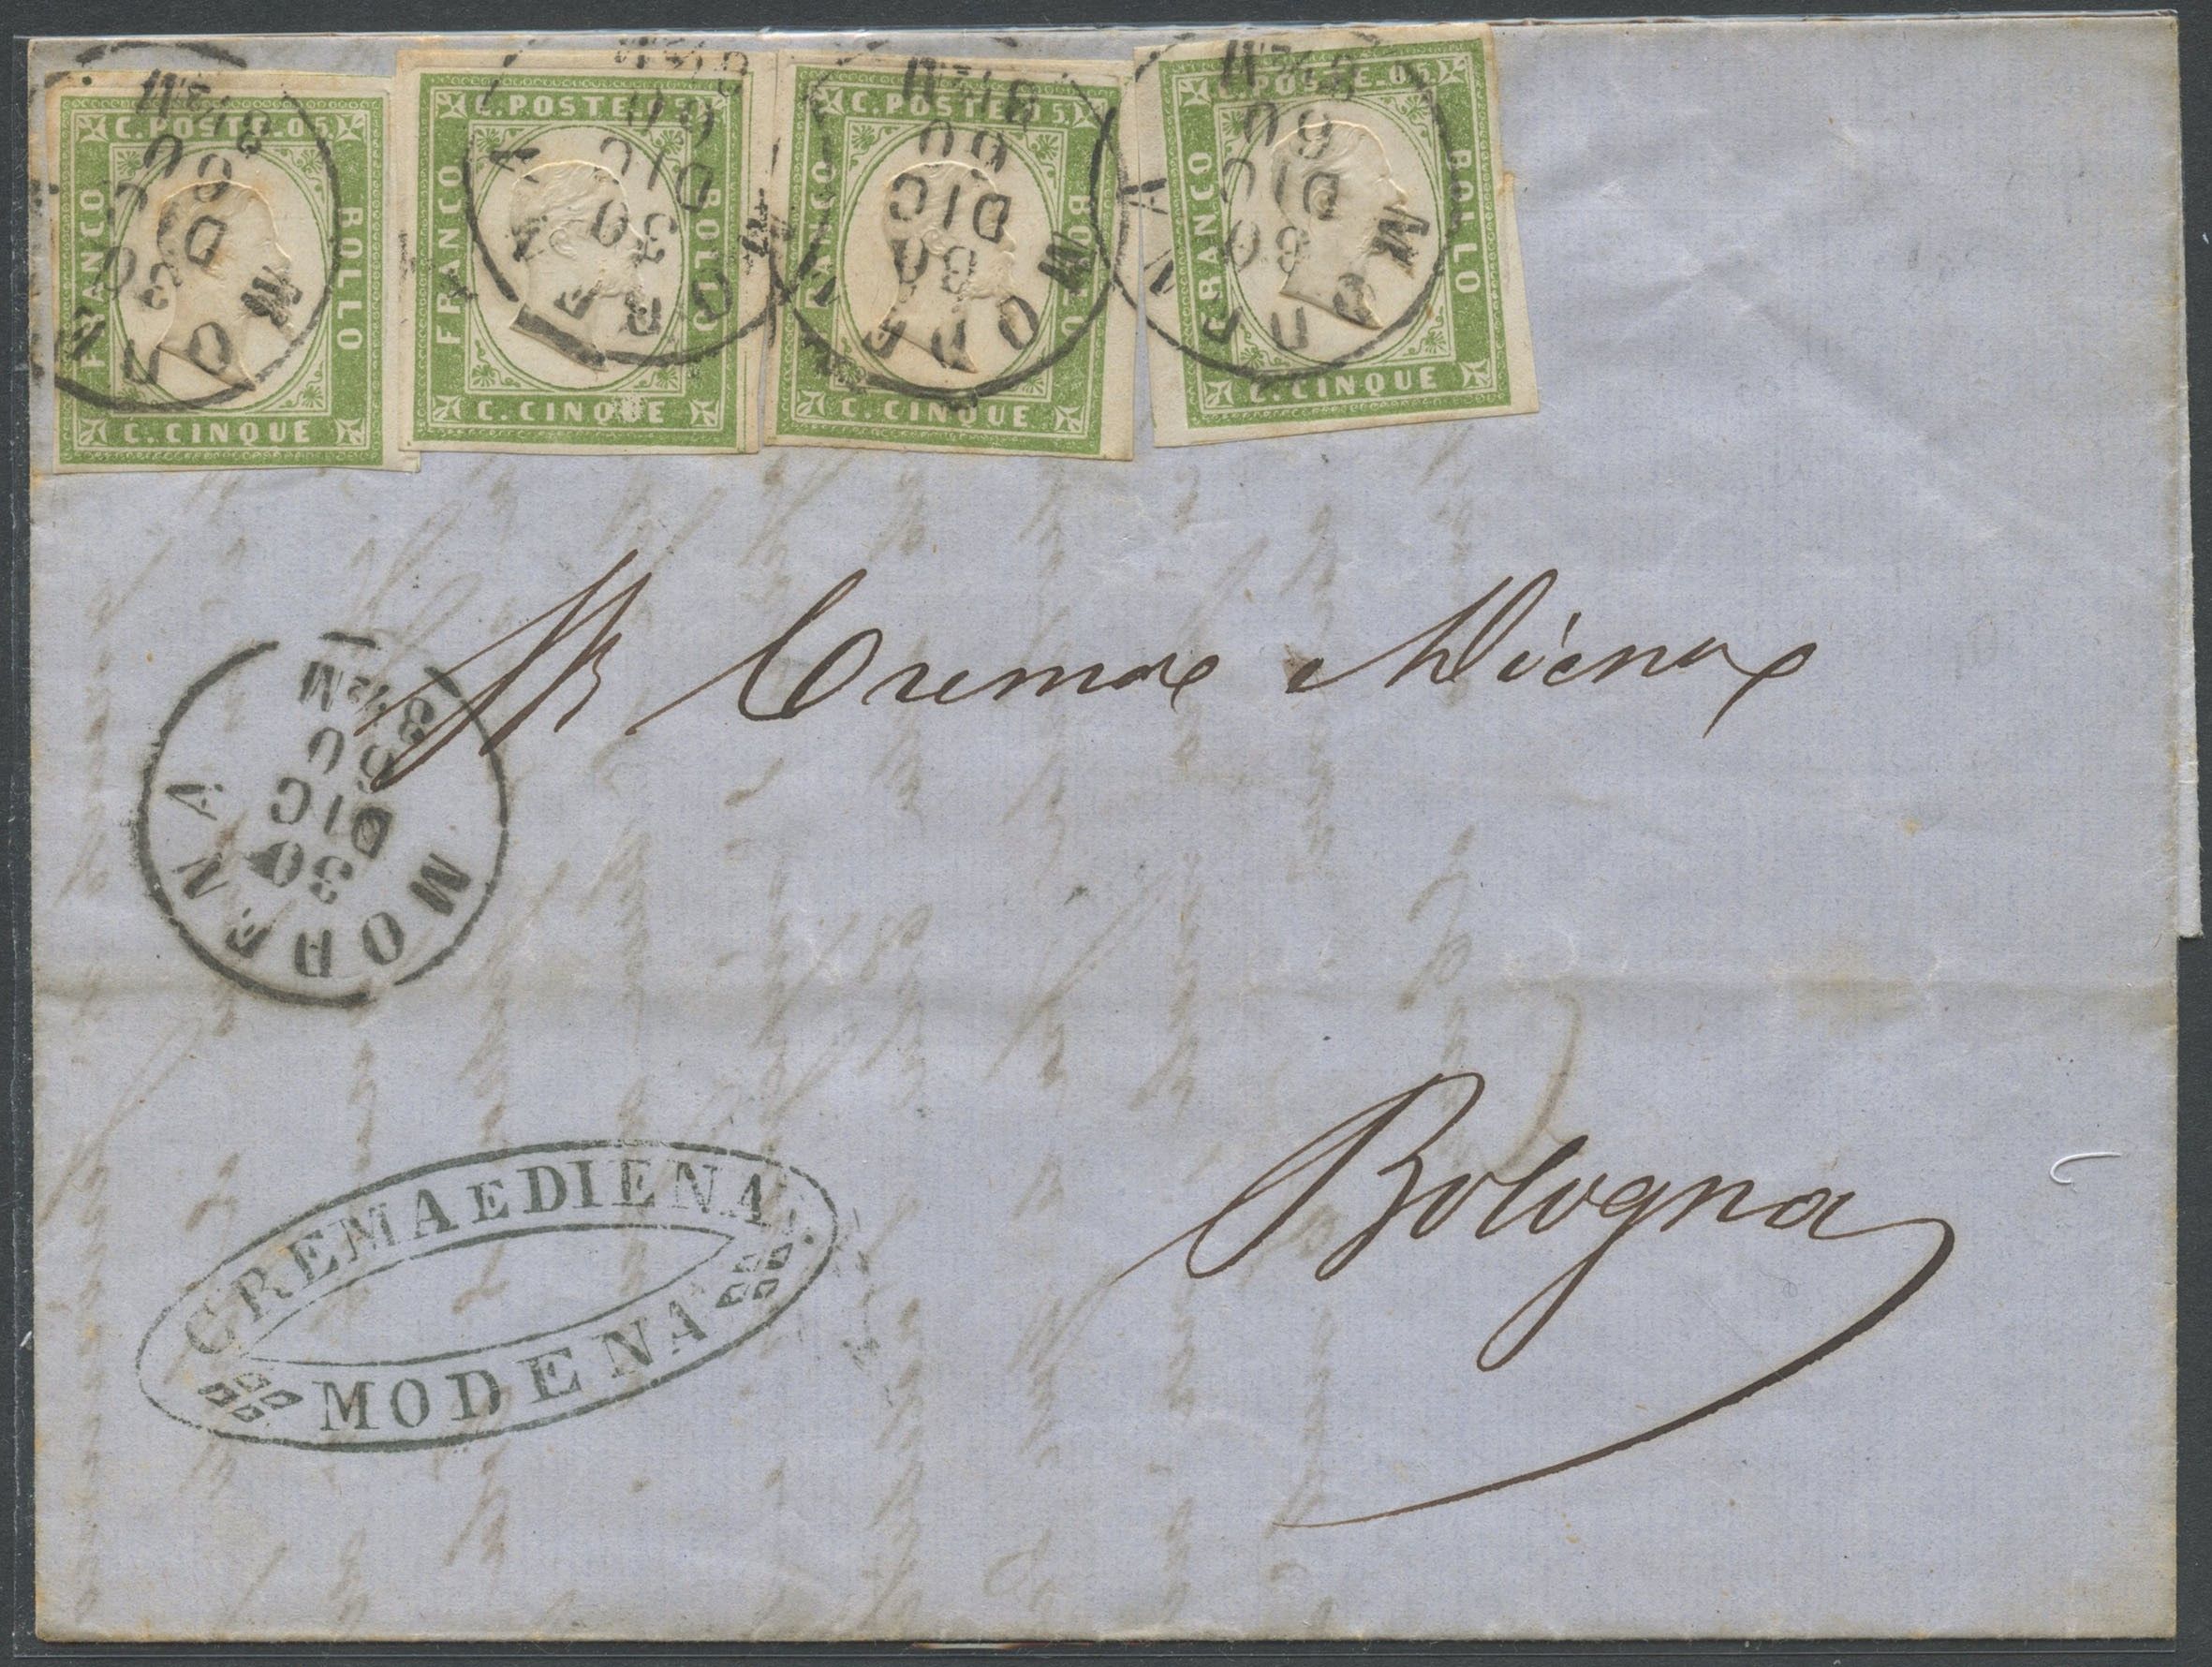 C. POSTE. 05
FRANCO
BOLLO
C. CINQUE
C. POSTE. 05
FRANCO
BOLLO
C. CINQUE
C. POSTE. 05.
FRANCO
BOLLO
C. CINQUE
C. POSTE. 05
FRANCO
BOLLO
C. CINQUE
MODENA
30
DIC
60
MODENA
30
DIC
60
MODENA
30
DIC
60
MODENA
30
DIC
60
Crema e Diena
MODENA
30
DIC
60
8½M
Bologna
CREMA E DIENA
MODENA